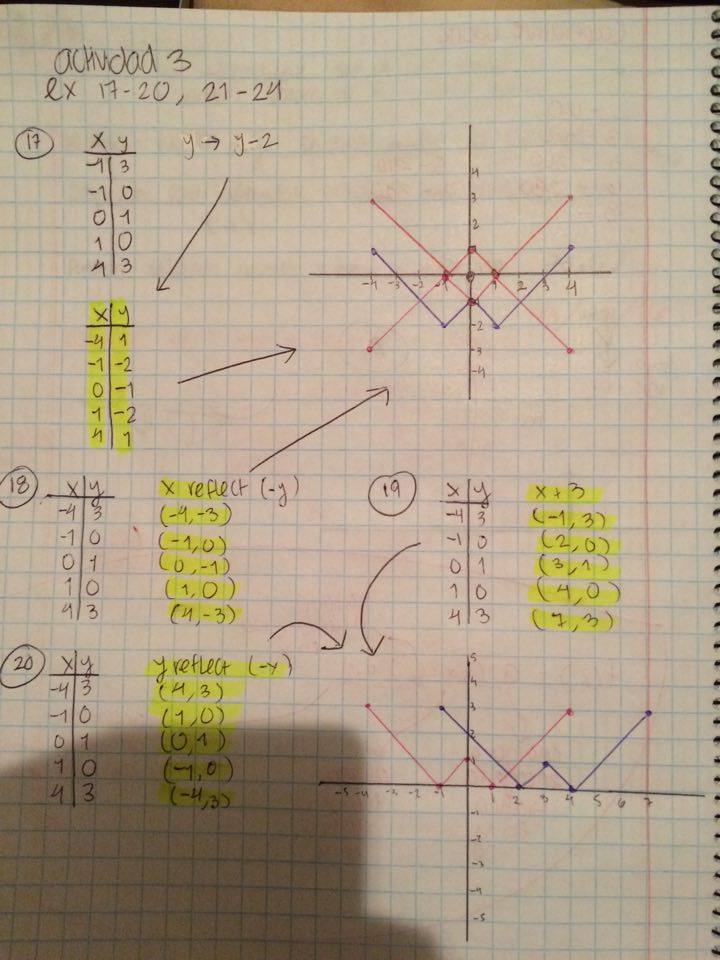 actividad 3
ex 17-20, 21-24
17
x y y → y-2
-4 3
-1 0
0 1
1 0
4 3
x y
-4 1
-1 -2
0 -1
1 -2
4 1
4
3
2
-4 -3 -2 -1 1 2 3 4
-2
-3
-4
18
x y x reflect (-y)
-4 3 (-4,-3)
-1 0 (-1,0)
0 1 (0,-1)
1 0 (1,0)
4 3 (4,-3)
19
x y x+3
-4 3 (-1,3)
-1 0 (2,0)
0 1 (3,1)
1 0 (4,0)
4 3 (7,3)
20
x y y reflect (-x)
-4 3 (4,3)
-1 0 (1,0)
0 1 (0,1)
1 0 (-1,0)
4 3 (-4,3)
5
4
3
2
1
-5 -4 -3 -2 -1 1 2 3 4 5 6 7
-1
-2
-3
-4
-5